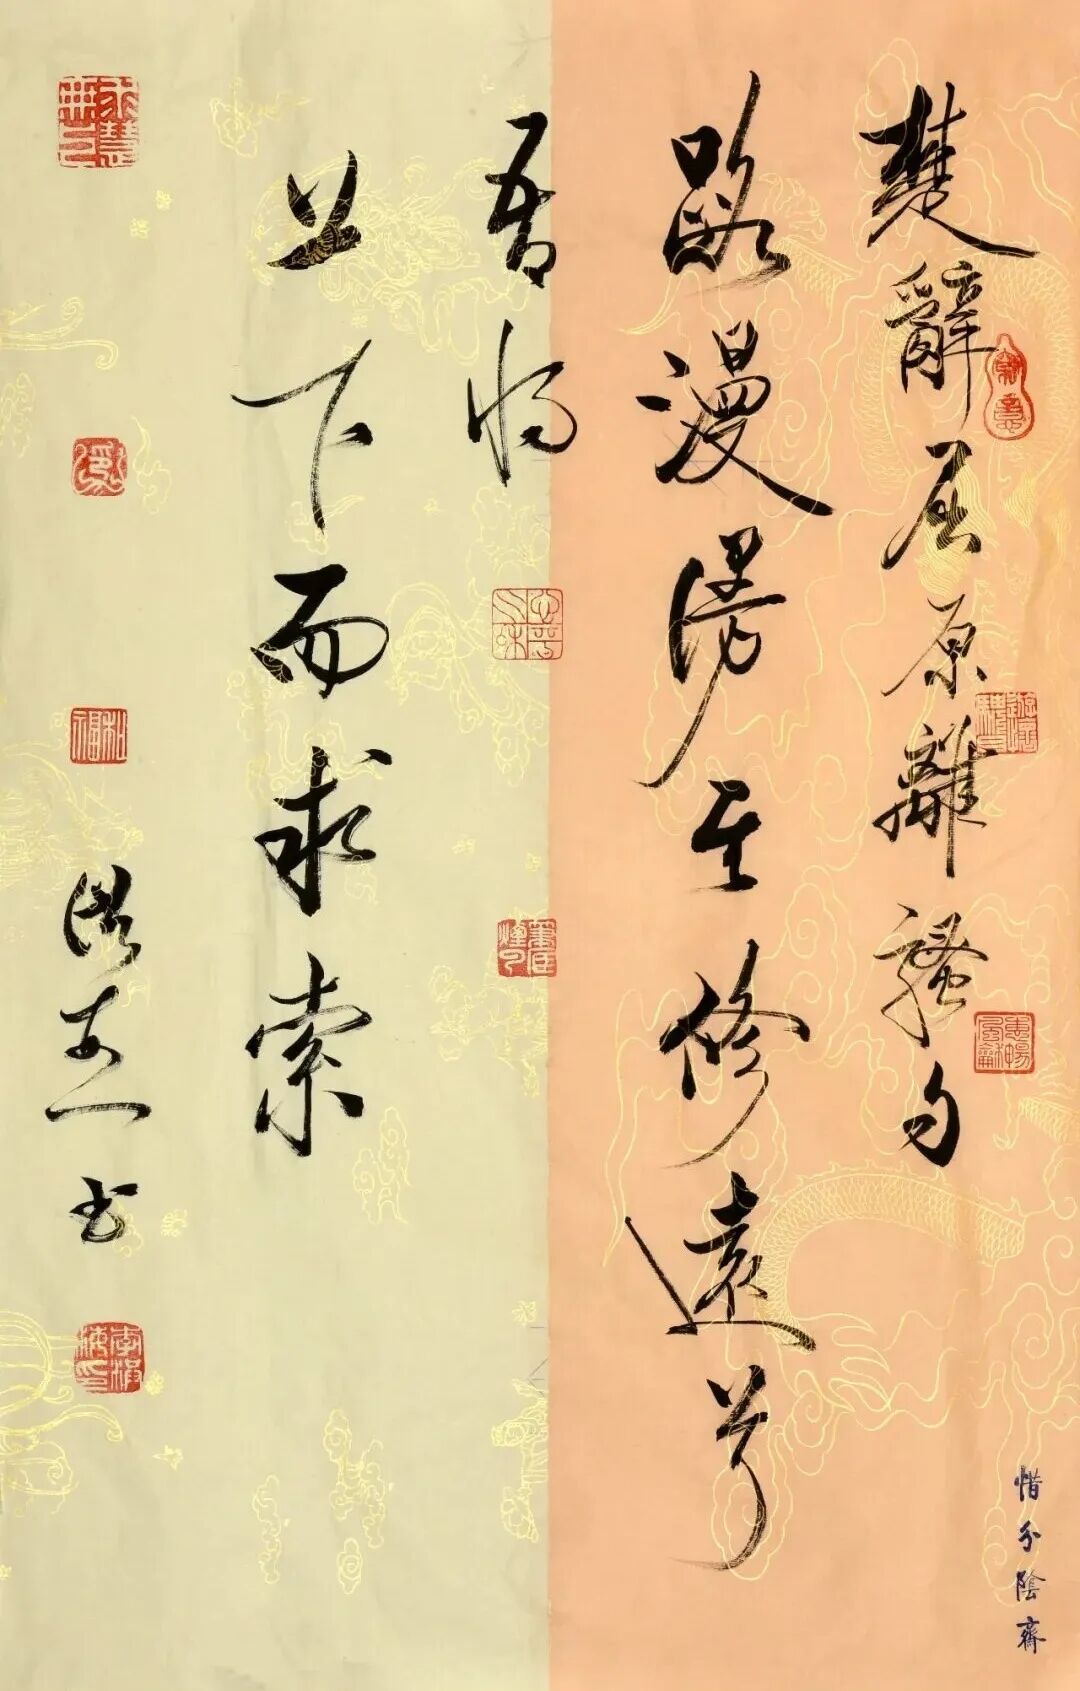 楚辭屈原離騷句
路漫漫其修遠兮
吾将
上下而求索
書
惜分陰齋
惠風和暢